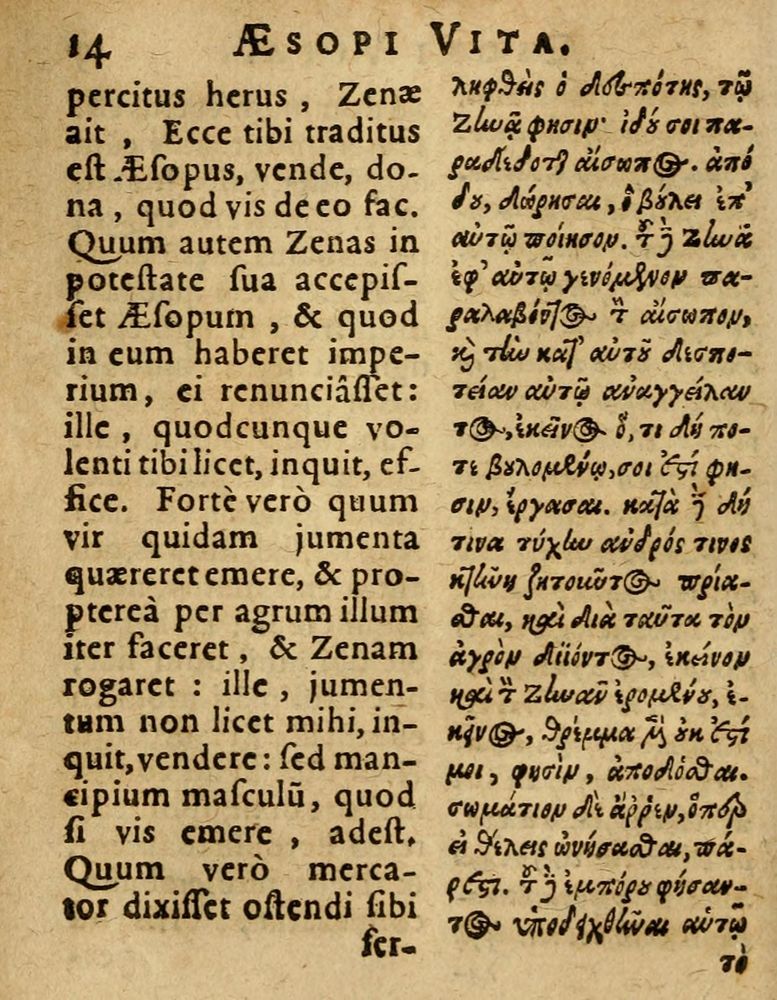 14 ÆSOPI VITA.
percitus herus , Zenæ
ait , Ecce tibi traditus
eſt Æſopus, vende, do-
na , quod vis de eo fac.
Quum autem Zenas in
poteſtate ſua accepiſ-
ſet Æſopum , & quod
in eum haberet impe-
rium, ei renunciâſſet:
ille , quodcunque vo-
lenti tibi licet, inquit, ef-
fice. Fortè verò quum
vir quidam jumenta
quæreret emere, & pro-
ptereà per agrum illum
iter faceret , & Zenam
rogaret : ille , jumen-
tum non licet mihi, in-
quit, vendere: ſed man-
cipium maſculū, quod
ſi vis emere , adeſt.
Quum verò merca-
tor dixiſſet oſtendi ſibi
ſer-
ληφθεὶς ὁ δεσπότης, τῷ
Ζηνᾷ φησιν· ἰδού σοι πα-
ραδέδοται αἴσωπος. ἀπό
δου, δώρησαι, ὃ βούλει ἐπ'
αὐτῷ ποίησον. τοῦ δὲ Ζηνᾶ
ἐφ' αὑτῷ γενόμενον πα-
ραλαβόντος τὸν αἴσωπον,
καὶ τὴν κατ' αὐτοῦ δεσπο-
τείαν αὐτῷ ἀναγγείλαν
τος, ἐκεῖνος ὅ, τι δή πο-
τε βουλομένῳ, σοι ἐστί φη-
σιν, ἔργασαι. κατὰ δὲ δή
τινα τύχην ἀνδρός τινος
κτήνη ζητοῦντος πρία-
σθαι, καὶ διὰ ταῦτα τὸν
ἀγρὸν διϊόντος, ἐκείνου
καὶ τὸν Ζηνᾶν ἐρομένου, ἐ-
κεῖνος, θρέμμα μὲν οὐκ ἐστί
μοι, φησὶν, ἀποδόσθαι.
σωμάτιον δὲ ἄῤῥεν, ὅπερ
εἰ θέλεις ὠνήσασθαι, πά-
ρεστι. τοῦ δὲ ἐμπόρου φήσαν-
τος ὑποδειχθῆναι αὐτῷ
τὸ